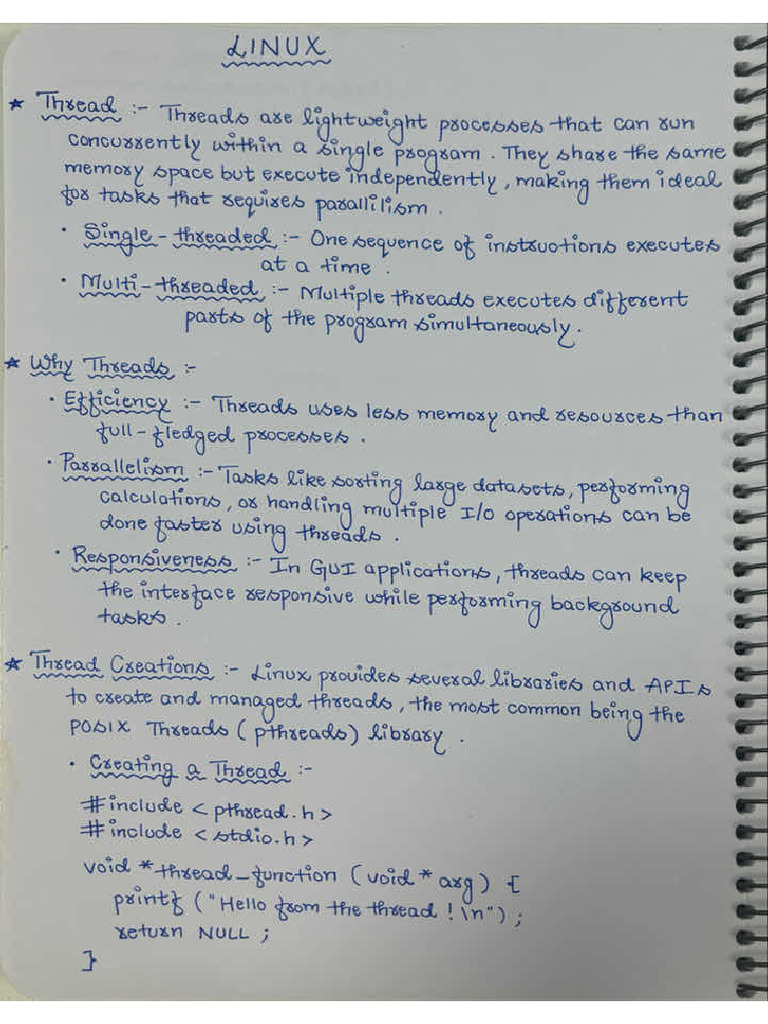 LINUX
* Thread :- Threads are lightweight processes that can run
concurrently within a single program. They share the same
memory space but execute independently, making them ideal
for tasks that requires parallilism.
• Single-threaded :- One sequence of instructions executes
at a time.
• Multi-threaded :- Multiple threads executes different
parts of the program simultaneously.
* Why Threads :-
• Efficiency :- Threads uses less memory and resources than
full-fledged processes.
• Parrallelism :- Tasks like sorting large datasets, performing
calculations, or handling multiple I/O operations can be
done faster using threads.
• Responsiveness :- In GUI applications, threads can keep
the interface responsive while performing background
tasks.
* Thread Creations :- Linux provides several libraries and APIs
to create and managed threads, the most common being the
POSIX Threads (pthreads) library.
• Creating a Thread :-
#include <pthread.h>
#include <stdio.h>
void *thread_function (void* arg) {
printf ("Hello from the thread !\n");
return NULL ;
}